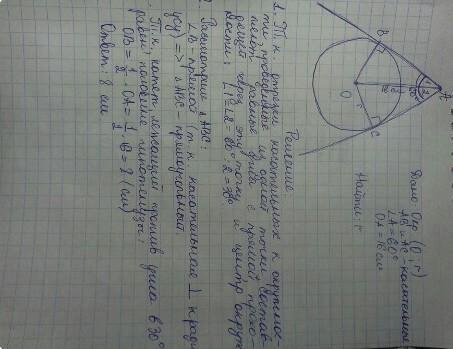 Дано: Окр (O; r)
AB и AC - касательные
∠A = 60°
OA = 16 см
Найти: r
B
O
16
60°
A
r
C
Решение
1. Т.к отрезки касательных к окружнос-
ти, проведенные из одной точки состав-
ляют равные углы с прямой, прохо-
дящей через эту точку и центр окруж-
ности: ∠1=∠2=60°:2=30°
Рассмотрим △ABC:
∠B - прямой (т.к касательная ⊥ к ради-
усу) => △AOC - прямоугольный
Т.к. катет лежащий против угла в 30°
равен половине гипотенузы:
OB = 1/2 · OA = 1/2 · 16 = 8 (см)
Ответ: 8 см